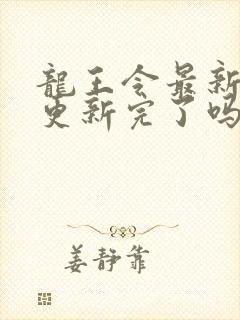 龍王令最新
更新完了吗
姜静靠